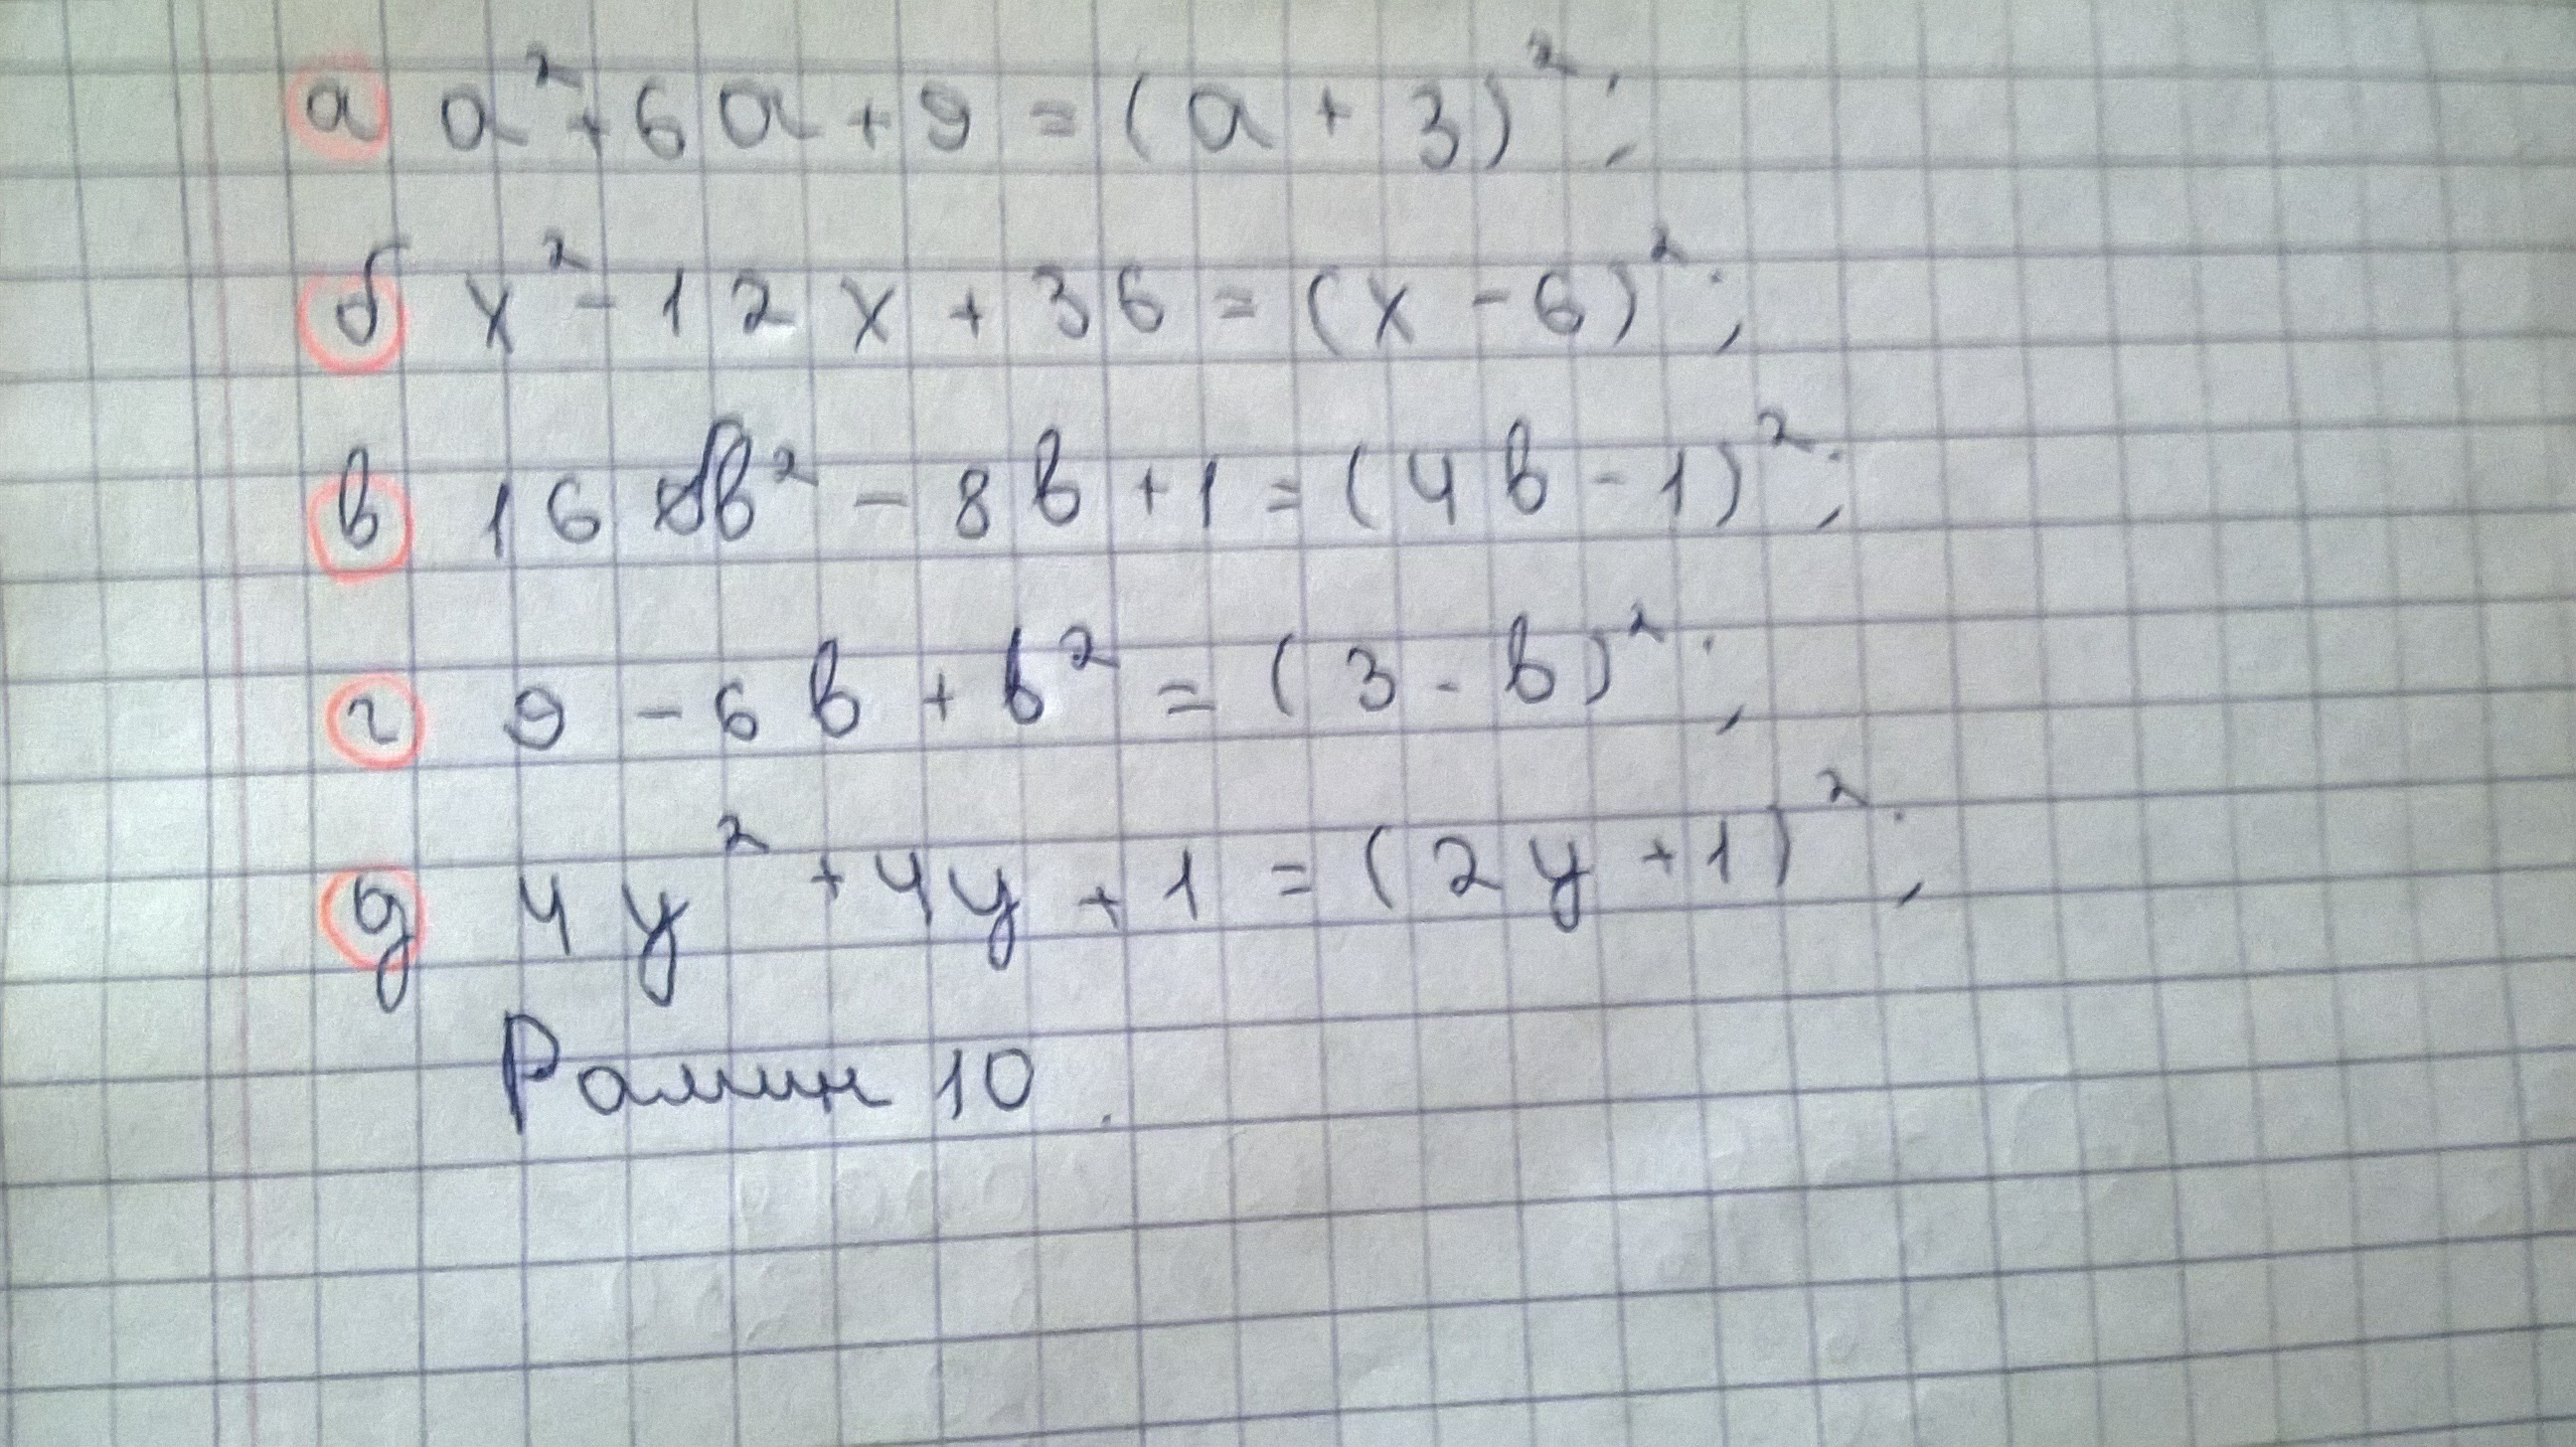 а a² + 6a + 9 = (a + 3)²;
б x² - 12x + 36 = (x - 6)²;
в 16 b² - 8b + 1 = (4b - 1)²;
г 9 - 6b + b² = (3 - b)²;
д 4y² + 4y + 1 = (2y + 1)²;
Рамин 10.